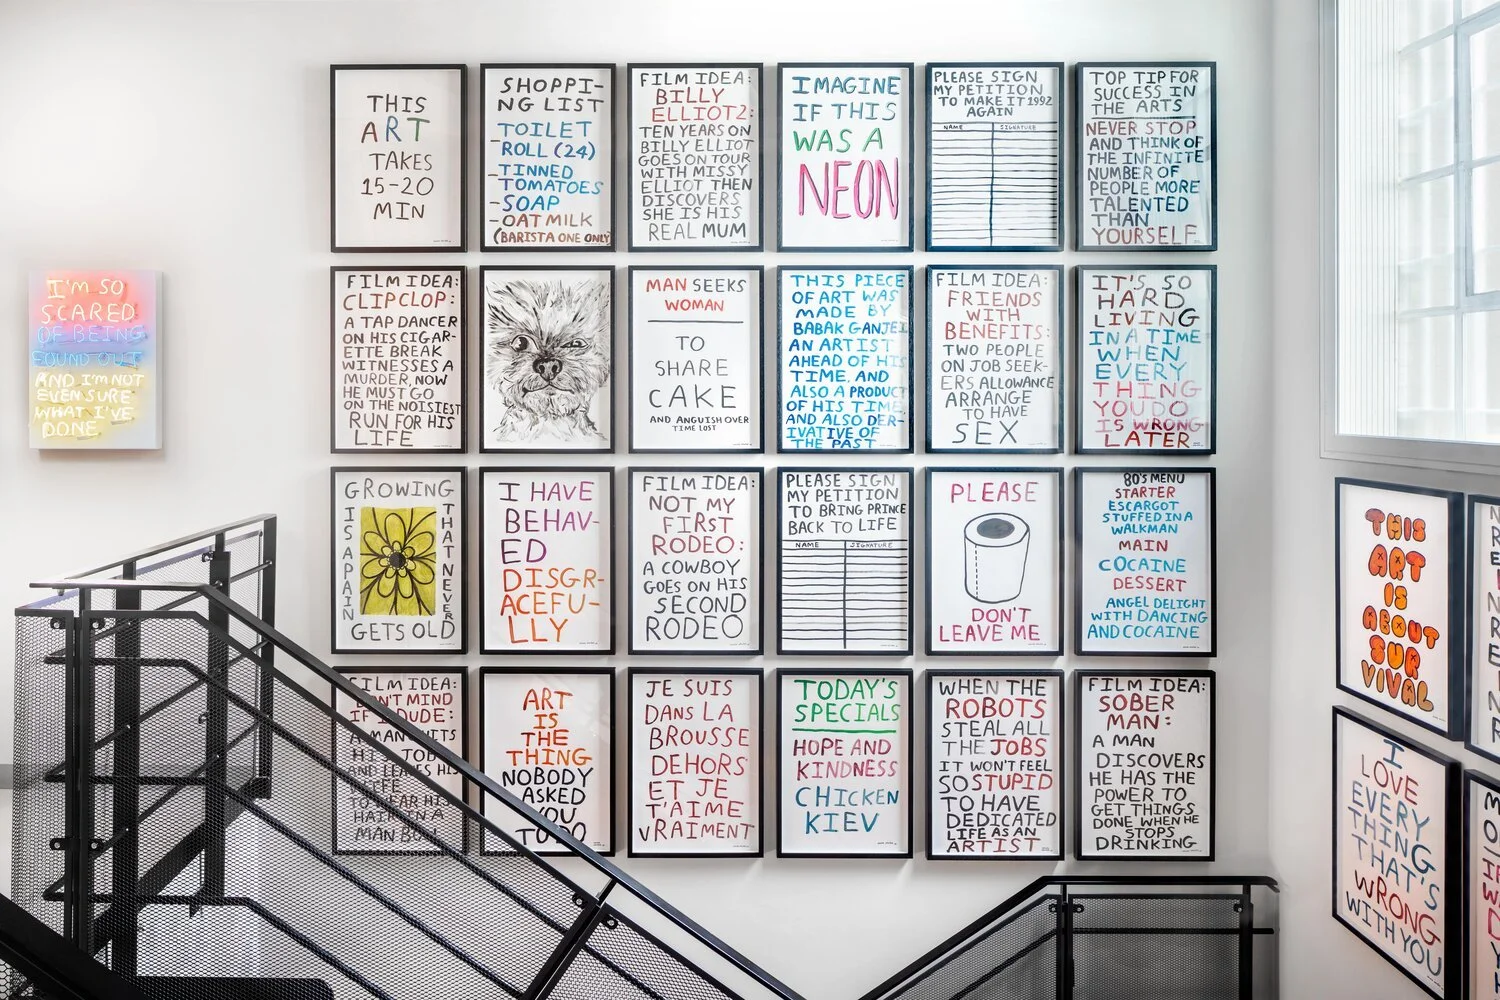 I'M SO
SCARED
OF BEING
FOUND OUT
AND I'M NOT
EVEN SURE
WHAT I'VE
DONE
THIS
ART
TAKES
15-20
MIN
SHOPPI-
NG LIST
-TOILET
ROLL (24)
-TINNED
TOMATOES
-SOAP
-OAT MILK
(BARISTA ONE ONLY)
FILM IDEA:
BILLY
ELLIOT 2:
TEN YEARS ON
BILLY ELLIOT
GOES ON TOUR
WITH MISSY
ELLIOT THEN
DISCOVERS
SHE IS HIS
REAL MUM
IMAGINE
IF THIS
WAS A
NEON
PLEASE SIGN
MY PETITION
TO MAKE IT 1992
AGAIN
NAME SIGNATURE
TOP TIP FOR
SUCCESS IN
THE ARTS
NEVER STOP
AND THINK OF
THE INFINITE
NUMBER OF
PEOPLE MORE
TALENTED
THAN
YOURSELF
FILM IDEA:
CLIP CLOP:
A TAP DANCER
ON HIS CIGAR-
ETTE BREAK
WITNESSES A
MURDER, NOW
HE MUST GO
ON THE NOISIEST
RUN FOR HIS
LIFE
MAN SEEKS
WOMAN
TO
SHARE
CAKE
AND ANGUISH OVER
TIME LOST
THIS PIECE
OF ART WAS
MADE BY
BABAK GANJEI
AN ARTIST
AHEAD OF HIS
TIME, AND
ALSO A PRODUCT
OF HIS TIME
AND ALSO DER-
IVATIVE OF
THE PAST
FILM IDEA:
FRIENDS
WITH
BENEFITS:
TWO PEOPLE
ON JOB SEEK-
ERS ALLOWANCE
ARRANGE
TO HAVE
SEX
IT'S SO
HARD
LIVING
IN A TIME
WHEN
EVERY
THING
YOU DO
IS WRONG
LATER
GROWING
IS A PAIN
THAT NEVER
GETS OLD
I HAVE
BEHAV-
ED
DISGR-
ACEFU-
LLY
FILM IDEA:
NOT MY
FIRST
RODEO:
A COWBOY
GOES ON HIS
SECOND
RODEO
PLEASE SIGN
MY PETITION
TO BRING PRINCE
BACK TO LIFE
NAME SIGNATURE
PLEASE
DON'T
LEAVE ME
80'S MENU
STARTER
ESCARGOT
STUFFED IN A
WALKMAN
MAIN
COCAINE
DESSERT
ANGEL DELIGHT
WITH DANCING
AND COCAINE
FILM IDEA:
DON'T MIND
IF I DUDE:
A MAN QUITS
HIS JOB
AND LEAVES HIS
LIFE
TO WEAR HIS
HAIR IN A
MAN BUN
ART
IS
THE
THING
NOBODY
ASKED
YOU
TO DO
JE SUIS
DANS LA
BROUSSE
DEHORS
ET JE
T'AIME
VRAIMENT
TODAY'S
SPECIALS
HOPE AND
KINDNESS
CHICKEN
KIEV
WHEN THE
ROBOTS
STEAL ALL
THE JOBS
IT WON'T FEEL
SO STUPID
TO HAVE
DEDICATED
LIFE AS AN
ARTIST
FILM IDEA:
SOBER
MAN:
A MAN
DISCOVERS
HE HAS THE
POWER TO
GET THINGS
DONE WHEN HE
STOPS
DRINKING
THIS
ART
IS
ABOUT
SUR
VIVAL
I
LOVE
EVERY
THING
THAT'S
WRONG
WITH YOU